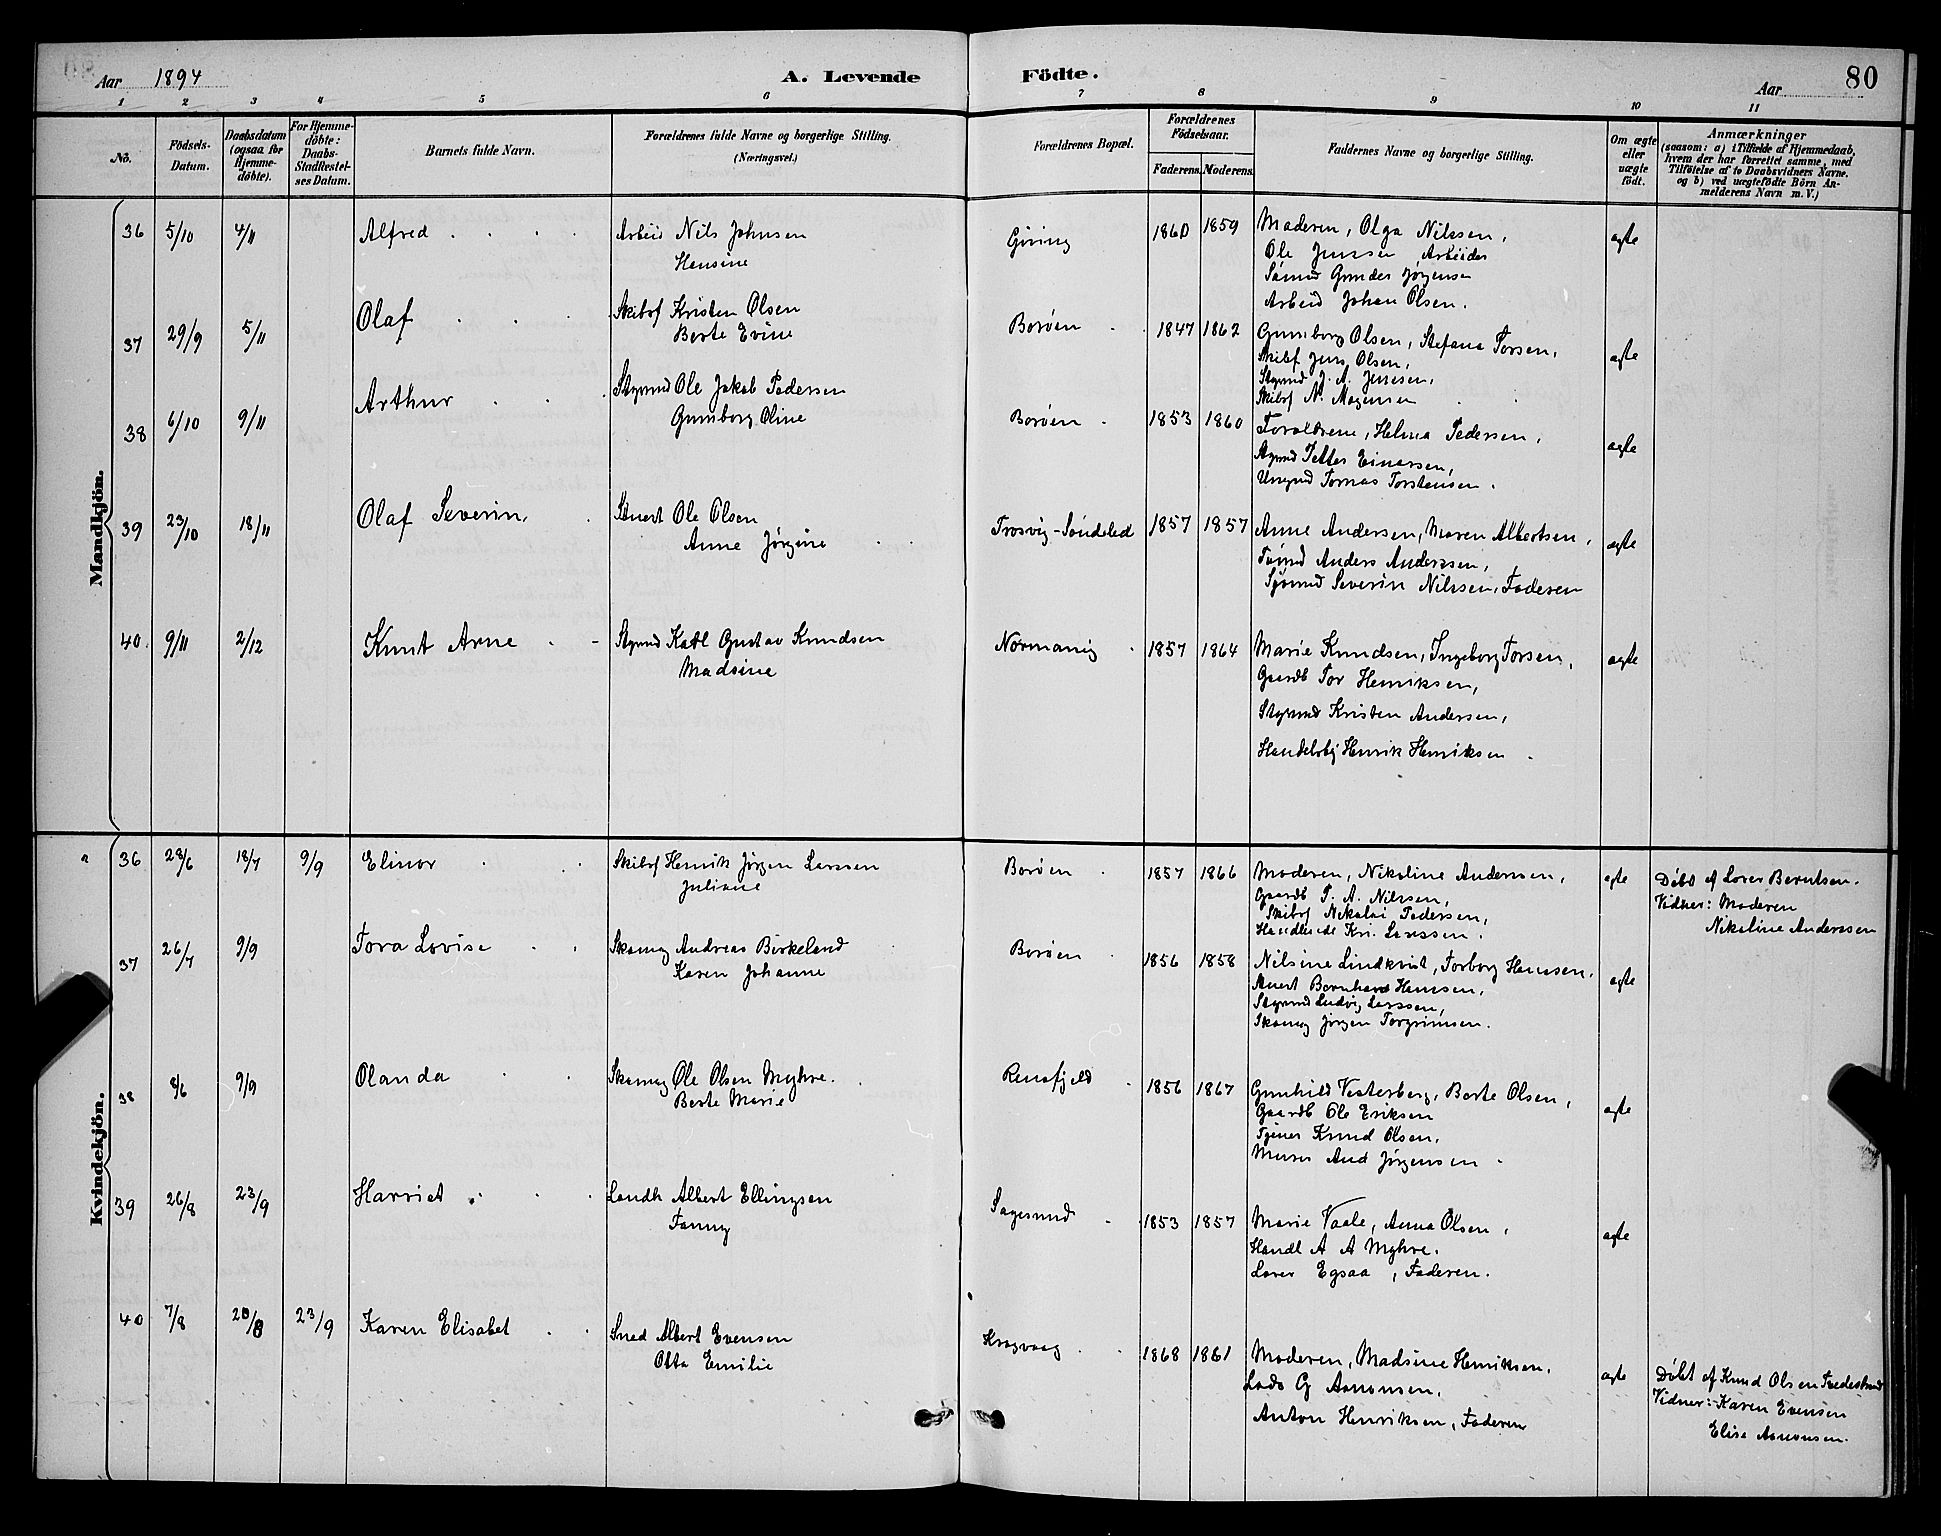 Aar 1894
A. Levende Födte.
Aar
80
1 2 3 4 5 6 7 8 9 10 11
No.
Födsels-Datum.
Daabsdatum (ogsaa for Hjemme-döbte).
For Hjemme-döbte: Daabs-Stadfæstelses Datum.
Barnets fulde Navn.
Forældrenes fulde Navne og borgerlige Stilling.
(Næringsvei.)
Forældrenes Bopæl.
Forældrenes Födselsaar.
Faderens. Moderens.
Faddernes Navne og borgerlige Stilling.
Om ægte eller uægte födt.
Anmærkninger
(saasom: a) i Tilfælde af Hjemmedaab,
hvem der har forrettet samme, med
Tilföielse af to Daabsvidners Navne.
og b) ved uægtefödte Börn An-
melderens Navn m.V.)
Mandkjön.
36 5/10 4/11 Alfred Arbeid Nils Johnsen Giving 1860 1859 Moderen, Olga Nilssen, ægte
Hensine Ole Jenssen Arbeider
Sömd Gunder Jørgensen
Arbeid Johan Olsen.
37 29/9 5/11 Olaf Skibsf Kristen Olsen Borøen 1847 1862 Gunborg Olsen, Stefana Torsen, ægte
Berte Evine Skibsf Jens Olsen,
Styrmd J. A. Jenssen,
Skibsf N. Mogensen
38 6/10 9/11 Arthur Styrmd Ole Jakob Pedersen Borøen 1853 1860 Forældrene, Helma Pedersen, ægte
Gunborg Oline Styrmd Petter Einersen,
Ungmd Tomas Torstensen.
39 23/10 18/11 Olaf Severin Stuert Ole Olsen Trosvig-Søndeled 1857 1857 Anne Andersen, Maren Albertsen, ægte
Anne Jørgine Tømmd Anders Anderssen,
Sjømd Severin Nilssen, Faderen
40. 9/11 2/12 Knut Arne Styrmd Karl Gustav Knudsen Normanvig 1857 1864 Marie Knudsen, Ingeborg Torsen, ægte
Madsine Gaardb Tor Henriksen,
Styrmd Kristen Andersen,
Handelsbtj Henrik Henriksen
Kvindekjön.
36 28/6 18/7 9/9 Elinor Skibsf Henrik Jørgen Larssen Borøen 1857 1866 Moderen, Nikoline Anderssen, ægte Döbt af Lærer Berntsen.
Juliane Gaardb P. A. Nilssen, Vidner: Moderen
Skibsf Nikolai Pedersen, Nikoline Anderssen
Handlende Kri. Larssen.
37 26/7 9/9 Tora Lovise Skomag Andreas Birkeland Borøen 1856 1858 Nilsine Lindkvist, Torborg Hanssen, ægte
Karen Johanne Stuert Bernhard Hanssen,
Styrmd Ludvig Larssen,
Skomag Jörgen Torgrimsen.
38 8/6 9/9 Olanda Skomag Ole Olsen Myhre. Rensfjeld 1856 1867 Gunhild Vesterberg, Berte Olsen, ægte
Berte Marie Gaardb Ole Eriksen
Tjener Knud Olsen,
Murer And Jørgensen
39 26/8 23/9 Harriet Landh Albert Ellingsen Sagesund 1853 1857 Marie Vaale, Anna Olsen, ægte
Fanny Handl A A Myhre.
Lærer Egsaa, Faderen.
40 7/8 20/8 23/9 Karen Elisabet Sned Albert Evensen Kragvaag 1868 1861 Moderen, Madsine Henriksen, ægte Döbt af Knud Olsen Tvedestrand
Otta Emilie Lods G Aanonsen, Vidner: Karen Evensen
Anton Henriksen, Faderen Elise Aanonsen.